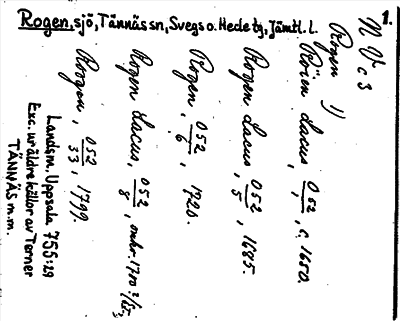 Rogen, sjö, Tännäs sn, Svegs o. Hede tg, Jämtl. l.
1.
N V c 3
Rogen 1)
Röien Lacus, 052/1, c. 1650.
Rogen Lacus, 052/5, 1685.
Rogen, 052/6, 1720.
Rogen Lacus, 052/8, omkr. 1700?
Roogen, 052/33, 1799.
Landsm. Uppsala 755:29
Exc. ur äldre källor av Terner
TÄNNÄS m.m.